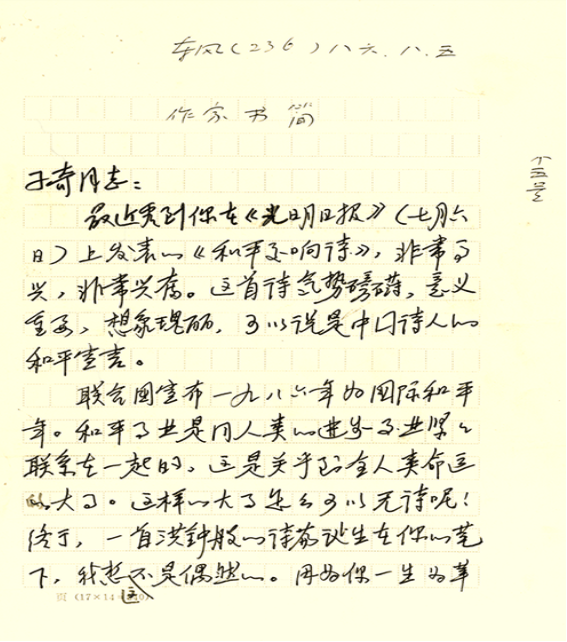 东风(236)八六.八.五
作家书简
小五号
子奇同志：
最近看到你在《光明日报》(七月六
日)上发表的《和平交响诗》，非常高
兴，非常兴奋。这首诗气势磅礴，意义
重要，想象瑰丽，可以说是中国诗人的
和平宣言。
联合国宣布一九八六年为国际和平
年。和平事业是同人类的进步事业紧紧
联系在一起的，这是关乎到全人类命运
的大事。这样的大事怎么可以无诗呢！
终于，一首洪钟般的诗篇诞生在你的笔
下，我想这不是偶然的。因为你一生为革
页 (17×14=240)